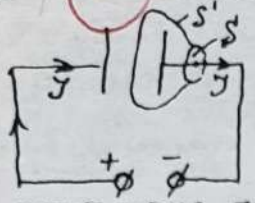 S'
S
J
J
+ -